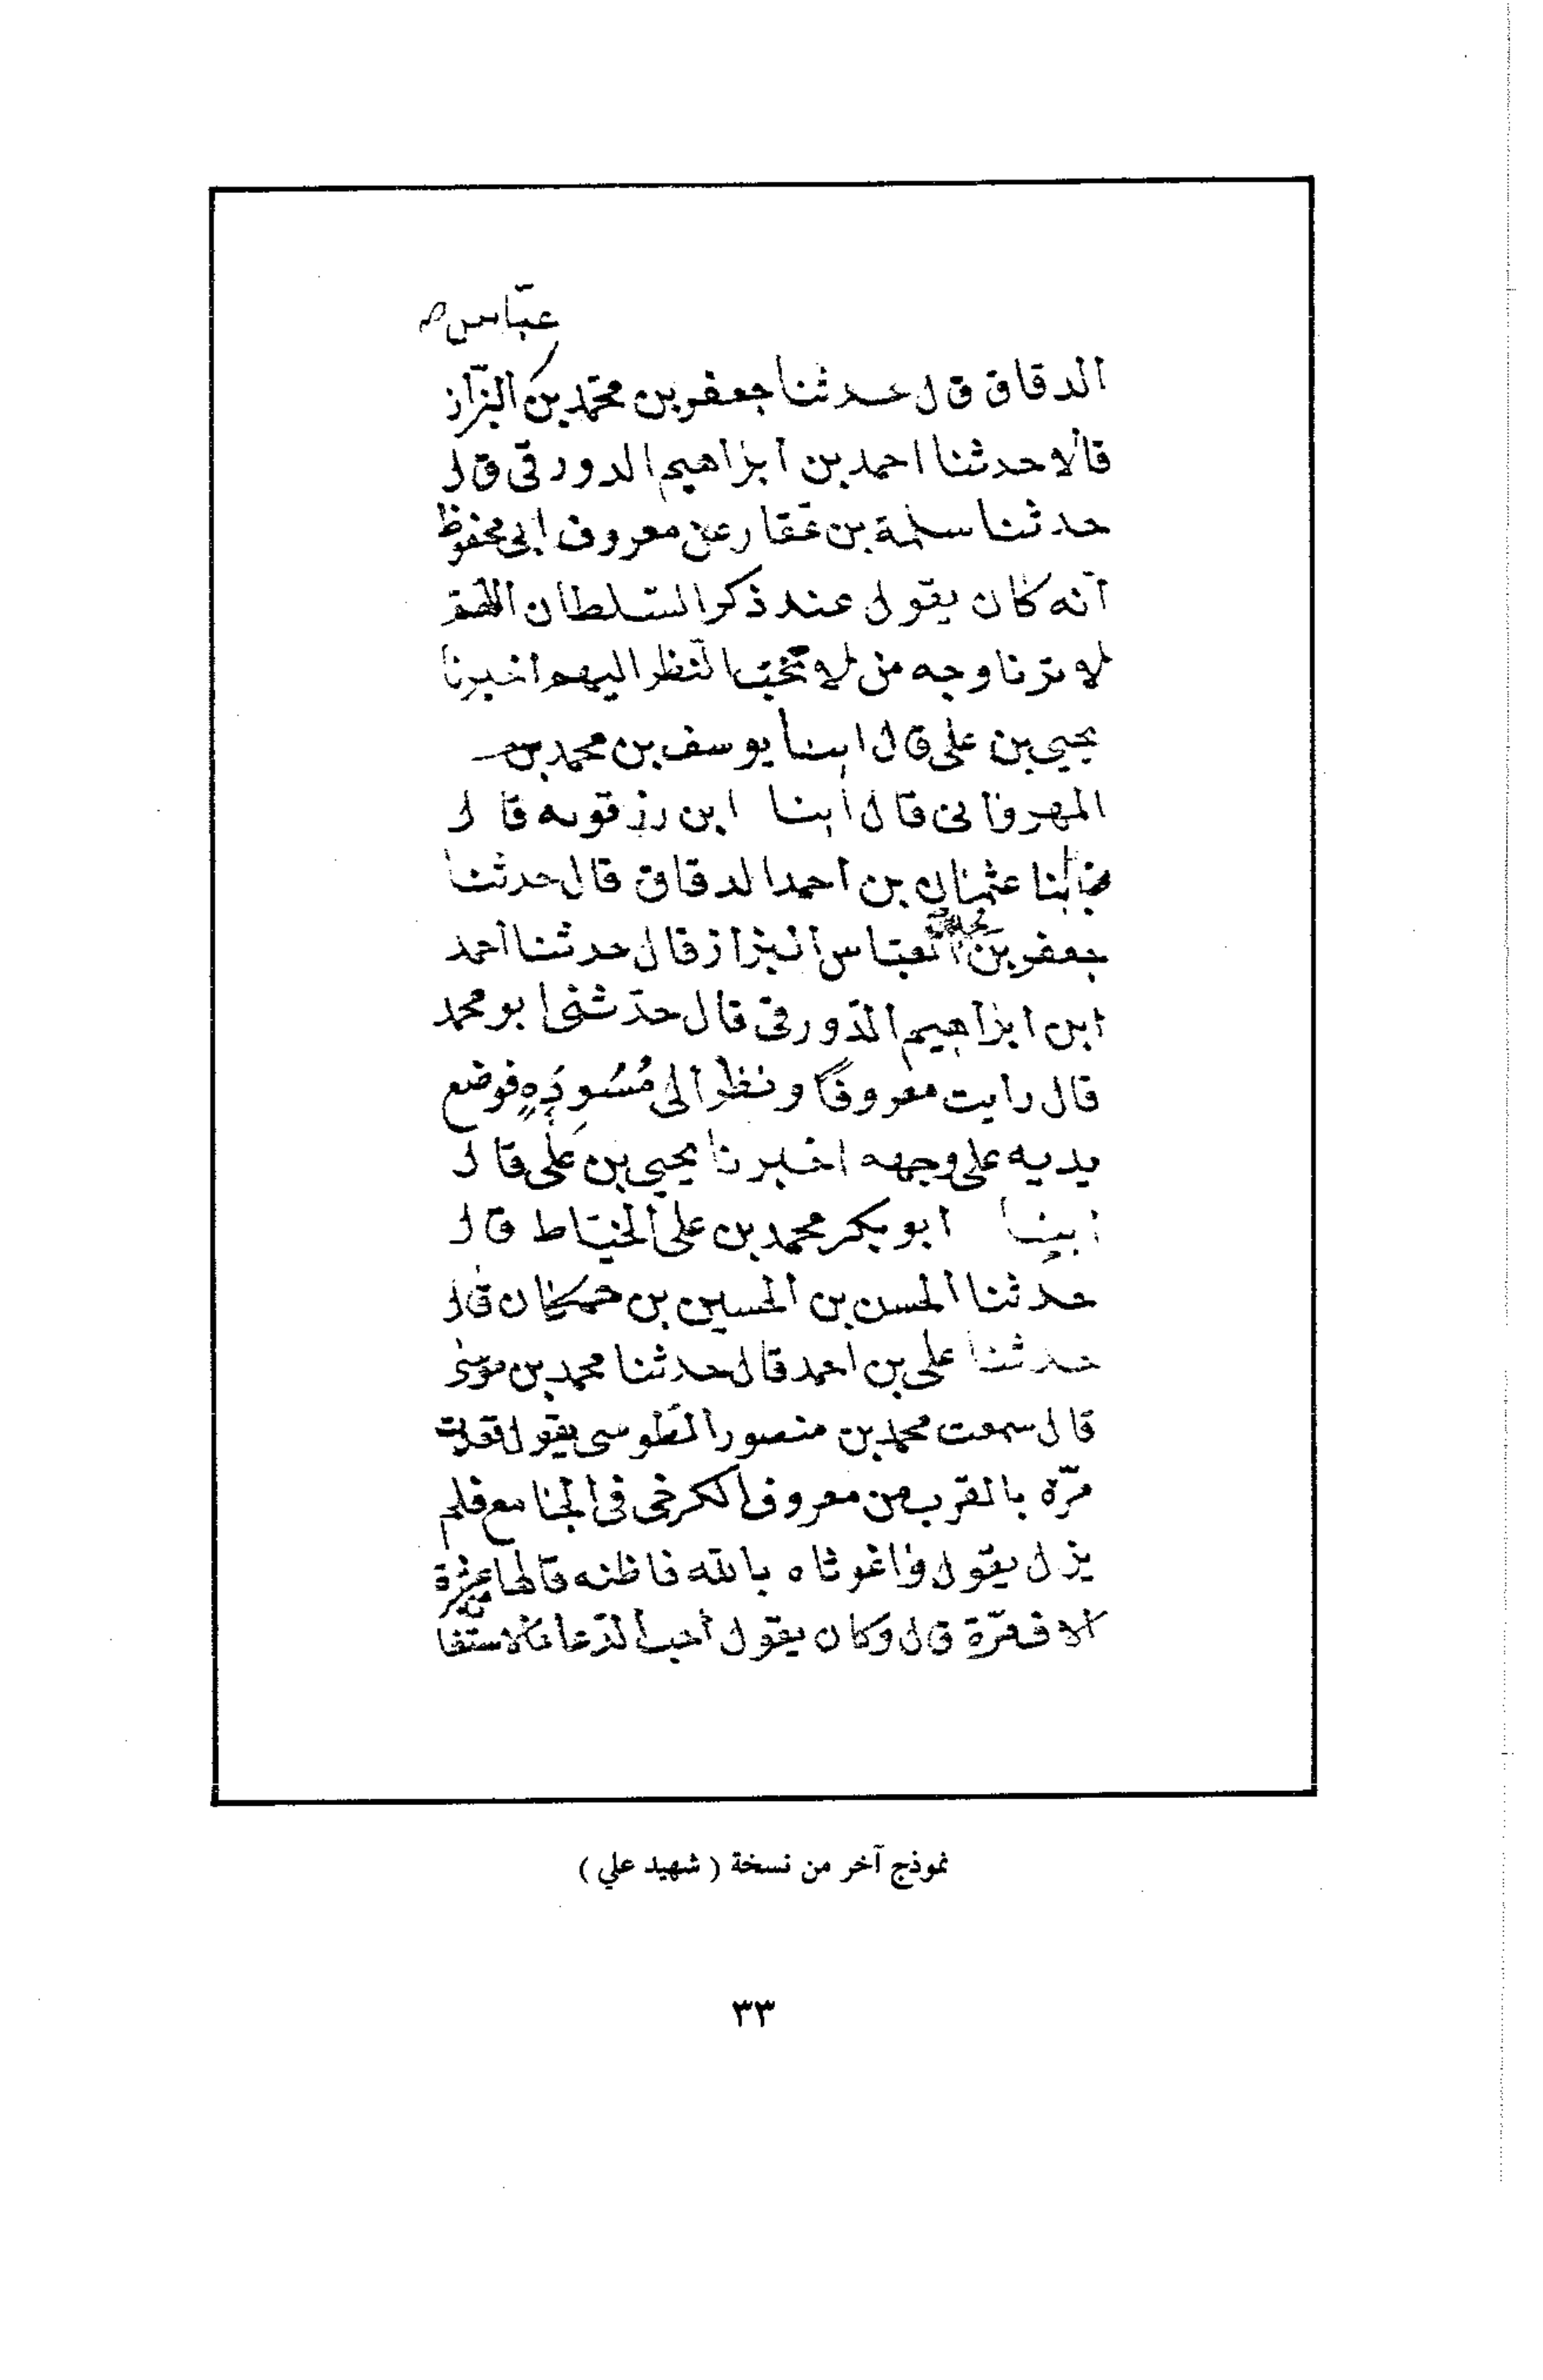 عبّاس صه
الدقاق قال حدثنا جعفر بن محمّد بن البزّاز
قالا حدثنا احمد بن ابراهيم الدورقي قال
حدثنا سلمة بن عقار عن معروف ابي محفوظ
انه كان يقول عند ذكر السّلطان اللّهمّ
لا ترنا وجه من لا تحبّ النظر اليهم اخبرنا
يحيى بن علي قال ابنا يوسف بن محمد بن
المهرواني قال ابنا ابن رزقويه قال
ابنا عثمان بن احمد الدقاق قال حدثنا
جعفر بن العبّاس البزاز قال حدثنا احمد
ابن ابراهيم الدّورقي قال حدّثني ابو محمد
قال رايت معروفًا ونظر الى مُسُودِّه فوضع
يديه على وجهه اخبرنا يحيى بن علي قال
ابنا ابو بكر محمد بن علي الخيّاط قال
حدثنا الحسن بن الحسين بن حمكان قال
حدثنا علي بن احمد قال حدثنا محمد بن موسى
قال سمعت محمد بن منصور الطّوسي يقول قعدت
مرّة بالقرب من معروف الكرخي في الجامع فلم
يزل يقول واغوثاه بالله فاظنه قالها عشرة
الاف مرّة قال وكان يقول احب الدّعا